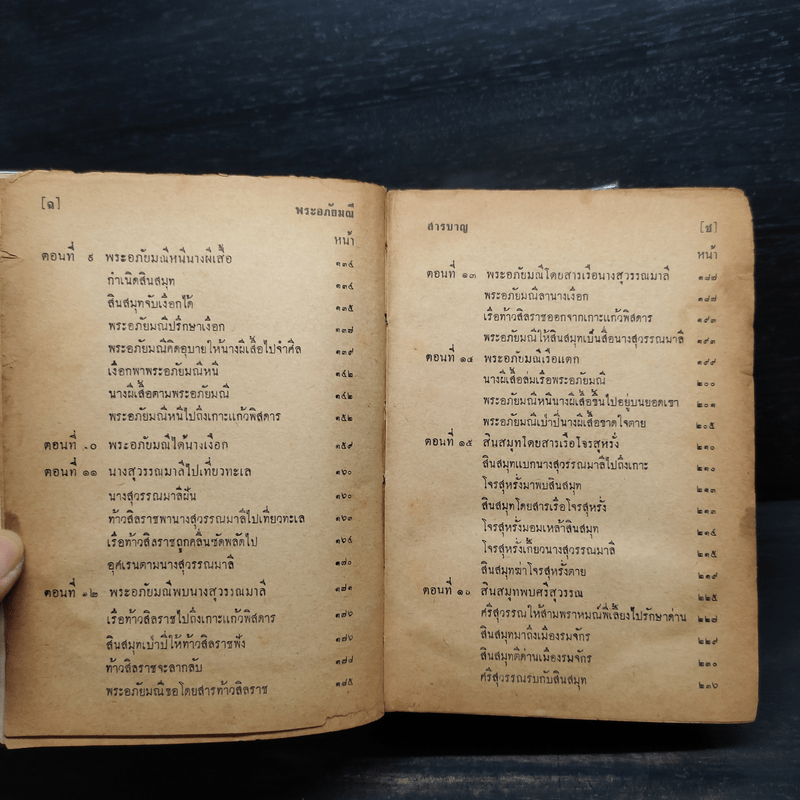 [ฉ] พระอภัยมณี
หน้า
ตอนที่ ๙ พระอภัยมณีหนีนางผีเสื้อ ๑๓๔
กำเนิดสินสมุท ๑๓๔
สินสมุทจับเงือกได้ ๑๓๕
พระอภัยมณีปรึกษาเงือก ๑๓๗
พระอภัยมณีคิดอุบายให้นางผีเสื้อไปจำศีล ๑๓๙
เงือกพาพระอภัยมณีหนี ๑๔๒
นางผีเสื้อตามพระอภัยมณี ๑๔๒
พระอภัยมณีหนีไปถึงเกาะแก้วพิสดาร ๑๕๒
ตอนที่ ๑๐ พระอภัยมณีได้นางเงือก ๑๕๙
ตอนที่ ๑๑ นางสุวรรณมาลีไปเที่ยวทะเล ๑๖๐
นางสุวรรณมาลีฝัน ๑๖๐
ท้าวสิลราชพานางสุวรรณมาลีไปเที่ยวทะเล ๑๖๓
เรือท้าวสิลราชถูกคลื่นซัดพลัดไป ๑๖๔
อุศเรนตามนางสุวรรณมาลี
ตอนที่ ๑๒ พระอภัยมณีพบนางสุวรรณมาลี ๑๗๑
เรือท้าวสิลราชไปถึงเกาะแก้วพิสดาร ๑๗๖
สินสมุทเป่าปี่ให้ท้าวสิลราชฟัง ๑๗๖
ท้าวสิลราชจะลากลับ
พระอภัยมณีขอโดยสารท้าวสิลราช ๑๘๕
สารบาญ [ช]
หน้า
ตอนที่ ๑๓ พระอภัยมณีโดยสารเรือนางสุวรรณมาลี ๑๘๗
พระอภัยมณีลานางเงือก ๑๘๗
เรือท้าวสิลราชออกจากเกาะแก้วพิสดาร ๑๙๓
พระอภัยมณีให้สินสมุทเป็นสื่อนางสุวรรณมาลี ๑๙๓
ตอนที่ ๑๔ พระอภัยมณีเรือแตก ๑๙๙
นางผีเสื้อล่มเรือพระอภัยมณี ๒๐๐
พระอภัยมณีหนีนางผีเสื้อขึ้นไปอยู่บนยอดเขา ๒๐๑
พระอภัยมณีเป่าปี่นางผีเสื้อขาดใจตาย ๒๐๕
ตอนที่ ๑๕ สินสมุทโดยสารเรือโจรสุหรั่ง ๒๑๐
สินสมุทแบกนางสุวรรณมาลีไปถึงเกาะ ๒๑๐
โจรสุหรั่งมาพบสินสมุท ๒๑๓
สินสมุทโดยสารเรือโจรสุหรั่ง ๒๑๓
โจรสุหรั่งมอมเหล้าสินสมุท ๒๑๔
โจรสุหรั่งเกี้ยวนางสุวรรณมาลี ๒๑๕
สินสมุทฆ่าโจรสุหรั่งตาย ๒๑๙
ตอนที่ ๑๖ สินสมุทพบศรีสุวรรณ ๒๒๕
ศรีสุวรรณให้สามพราหมณ์พี่เลี้ยงไปรักษาด่าน ๒๒๗
สินสมุทมาถึงเมืองรมจักร ๒๒๙
สินสมุทตีด่านเมืองรมจักร ๒๓๐
ศรีสุวรรณรบกับสินสมุท ๒๓๖